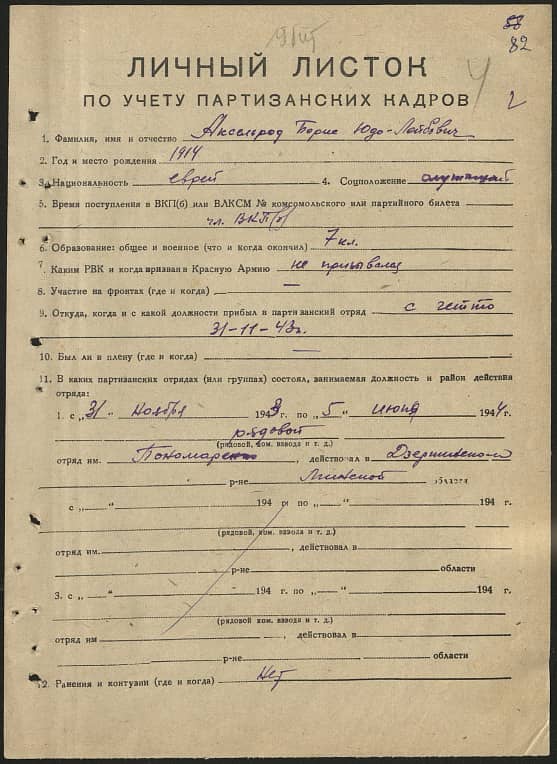 82
ЛИЧНЫЙ ЛИСТОК
ПО УЧЕТУ ПАРТИЗАНСКИХ КАДРОВ
1. Фамилия, имя и отчество Аксельрод Борис Юдо-Лейбович
2. Год и место рождения 1914
3. Национальность еврей 4. Соцположение служащий
5. Время поступления в ВКП(б) или ВЛКСМ № комсомольского или партийного билета
чл. ВКП(б)
6. Образование: общее и военное (что и когда окончил) 7 кл.
7. Каким РВК и когда призван в Красную Армию не призывался
8. Участие на фронтах (где и когда) —
9. Откуда, когда и с какой должности прибыл в партизанский отряд с гетто
31-11-43г.
10. Был ли в плену (где и когда) —
11. В каких партизанских отрядах (или группах) состоял, занимаемая должность и район действия
отряда:
1. с „31“ ноября 1943 г. по „5“ июня 1944 г.
рядовой
(рядовой, ком. взвода и т. д.)
отряд им. Пономаренко, действовал в Дзержинском
р-не Минской области
с „ “ 194 г. по „ “ 194 г.
(рядовой, ком. взвода и т. д.)
отряд им. , действовал в
р-не области
3. с „ “ 194 г. по „ “ 194 г.
(рядовой, ком. взвода и т. д.)
отряд им , действовал в
р-не области
12. Ранения и контузии (где и когда) Нет